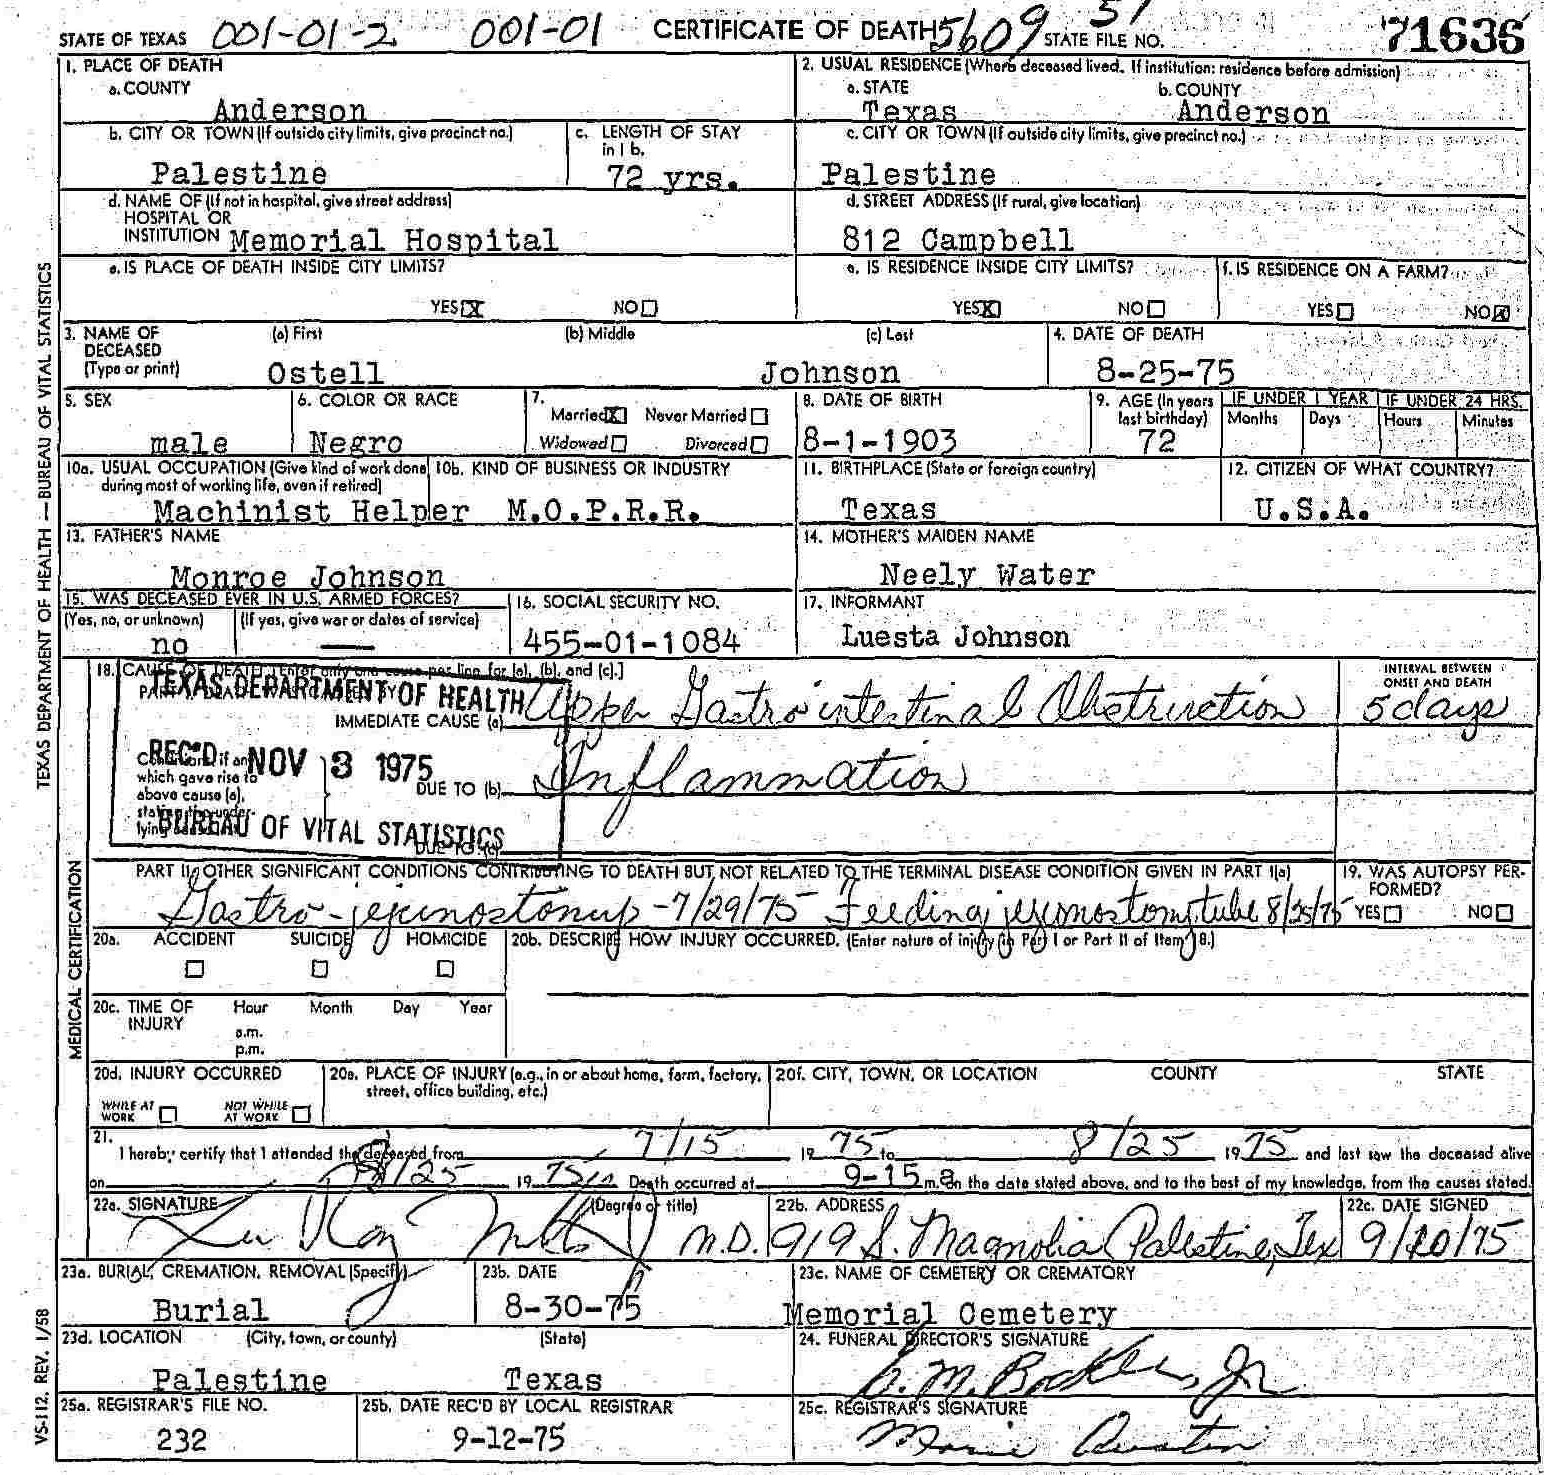 STATE OF TEXAS 001-01-2 001-01 CERTIFICATE OF DEATH 5609 51 STATE FILE NO. 71636
1. PLACE OF DEATH
a. COUNTY
Anderson
2. USUAL RESIDENCE (Where deceased lived. If institution: residence before admission)
a. STATE b. COUNTY
Texas Anderson
b. CITY OR TOWN (If outside city limits, give precinct no.)
Palestine
c. LENGTH OF STAY
in 1 b.
72 yrs.
c. CITY OR TOWN (If outside city limits, give precinct no.)
Palestine
d. NAME OF (If not in hospital, give street address)
HOSPITAL OR
INSTITUTION Memorial Hospital
d. STREET ADDRESS (If rural, give location)
812 Campbell
e. IS PLACE OF DEATH INSIDE CITY LIMITS?
YES X NO
e. IS RESIDENCE INSIDE CITY LIMITS?
YES X NO
f. IS RESIDENCE ON A FARM?
YES NO X
3. NAME OF DECEASED (Type or print)
(a) First (b) Middle (c) Last
Ostell Johnson
4. DATE OF DEATH
8-25-75
5. SEX
male
6. COLOR OR RACE
Negro
7.
Married X Never Married
Widowed Divorced
8. DATE OF BIRTH
8-1-1903
9. AGE (In years last birthday)
72
IF UNDER 1 YEAR IF UNDER 24 HRS.
Months Days Hours Minutes
10a. USUAL OCCUPATION (Give kind of work done
during most of working life, even if retired)
Machinist Helper
10b. KIND OF BUSINESS OR INDUSTRY
M.O.P.R.R.
11. BIRTHPLACE (State or foreign country)
Texas
12. CITIZEN OF WHAT COUNTRY?
U.S.A.
13. FATHER'S NAME
Monroe Johnson
14. MOTHER'S MAIDEN NAME
Neely Water
15. WAS DECEASED EVER IN U.S. ARMED FORCES?
(Yes, no, or unknown) (If yes, give war or dates of service)
no —
16. SOCIAL SECURITY NO.
455-01-1084
17. INFORMANT
Luesta Johnson
18. CAUSE OF DEATH [Enter only one cause per line for (a), (b), and (c).]
TEXAS DEPARTMENT OF HEALTH
REC'D NOV 3 1975
BUREAU OF VITAL STATISTICS
IMMEDIATE CAUSE (a) Upper Gastrointestinal Obstruction
INTERVAL BETWEEN
ONSET AND DEATH
5 days
which gave rise to
above cause (a),
DUE TO (b) Inflammation
DUE TO (c)
PART II. OTHER SIGNIFICANT CONDITIONS CONTRIBUTING TO DEATH BUT NOT RELATED TO THE TERMINAL DISEASE CONDITION GIVEN IN PART I(a)
Gastro-jejunostomy - 7/29/75 Feeding jejunostomy tube 8/25/75
19. WAS AUTOPSY PERFORMED?
YES NO
20a. ACCIDENT SUICIDE HOMICIDE
20b. DESCRIBE HOW INJURY OCCURRED. (Enter nature of injury in Part I or Part II of Item 18.)
20c. TIME OF INJURY
Hour Month Day Year
a.m.
p.m.
20d. INJURY OCCURRED
WHILE AT WORK NOT WHILE AT WORK
20e. PLACE OF INJURY (e.g., in or about home, farm, factory,
street, office building, etc.)
20f. CITY, TOWN, OR LOCATION COUNTY STATE
21.
I hereby certify that I attended the deceased from 7/15 1975 to 8/25 1975 and last saw the deceased alive
on 8/25 1975 Death occurred at 9-15 a m. on the date stated above, and to the best of my knowledge, from the causes stated.
22a. SIGNATURE (Degree or title)
M.D.
22b. ADDRESS
919 S. Magnolia Palestine, Tex
22c. DATE SIGNED
9/10/75
23a. BURIAL, CREMATION, REMOVAL (Specify)
Burial
23b. DATE
8-30-75
23c. NAME OF CEMETERY OR CREMATORY
Memorial Cemetery
23d. LOCATION (City, town, or county) (State)
Palestine Texas
24. FUNERAL DIRECTOR'S SIGNATURE
25a. REGISTRAR'S FILE NO.
232
25b. DATE REC'D BY LOCAL REGISTRAR
9-12-75
25c. REGISTRAR'S SIGNATURE
Marie Austin
TEXAS DEPARTMENT OF HEALTH — BUREAU OF VITAL STATISTICS
MEDICAL CERTIFICATION
VS-112, REV. 1/58